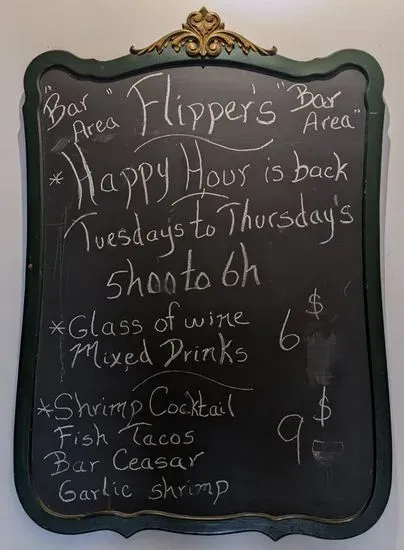 "Bar Area" Flipper's "Bar Area"
* Happy Hour is back
Tuesdays to Thursday's
5h00 to 6h
* Glass of wine
Mixed Drinks 6 $
* Shrimp Cocktail
Fish Tacos 9 $
Bar Ceasar
Garlic shrimp